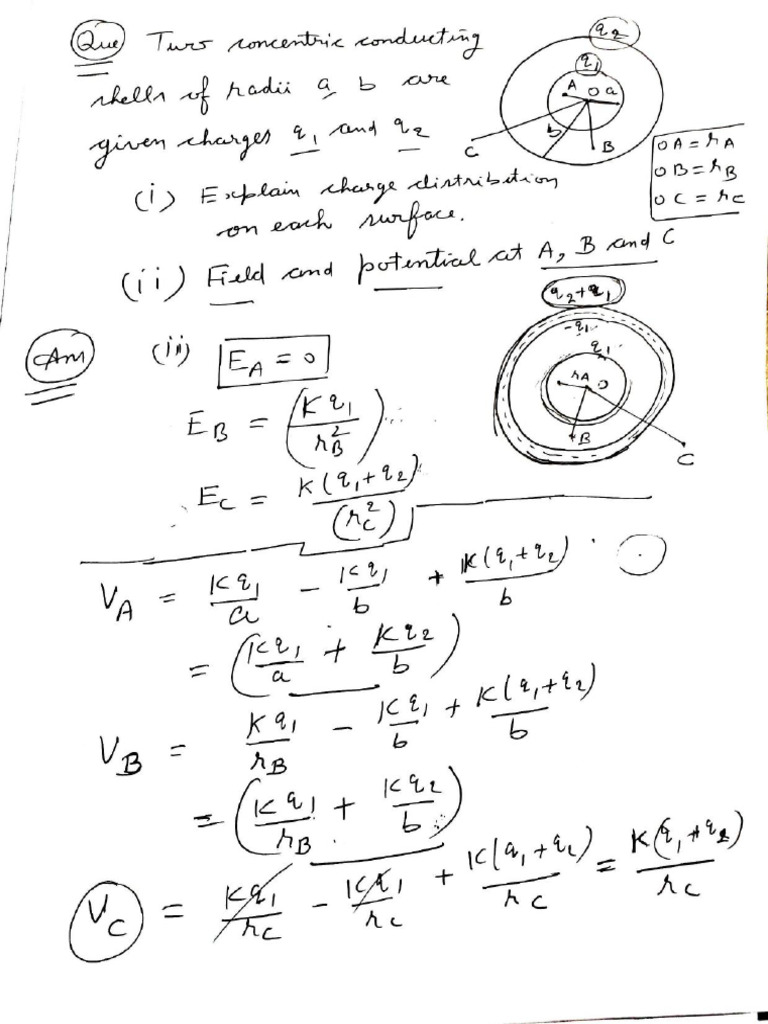 Que Two concentric conducting
shells of radii a, b are
given charges q₁ and q₂
(i) Explain charge distribution
on each surface.
(ii) Field and potential at A, B and C
q₂
q₁
A O a
b
B
C
OA = rA
OB = rB
OC = rC
q₂+q₁
-q₁
q₁
rA O
B
C
Ans (ii) E_A = 0
E_B = (Kq₁/r_B²)
E_C = K(q₁+q₂)/(r_C²)
V_A = Kq₁/a - Kq₁/b + K(q₁+q₂)/b
= (Kq₁/a + Kq₂/b)
V_B = Kq₁/r_B - Kq₁/b + K(q₁+q₂)/b
= (Kq₁/r_B + Kq₂/b)
V_C = Kq₁/r_C - Kq₁/r_C + K(q₁+q₂)/r_C = K(q₁+q₂)/r_C